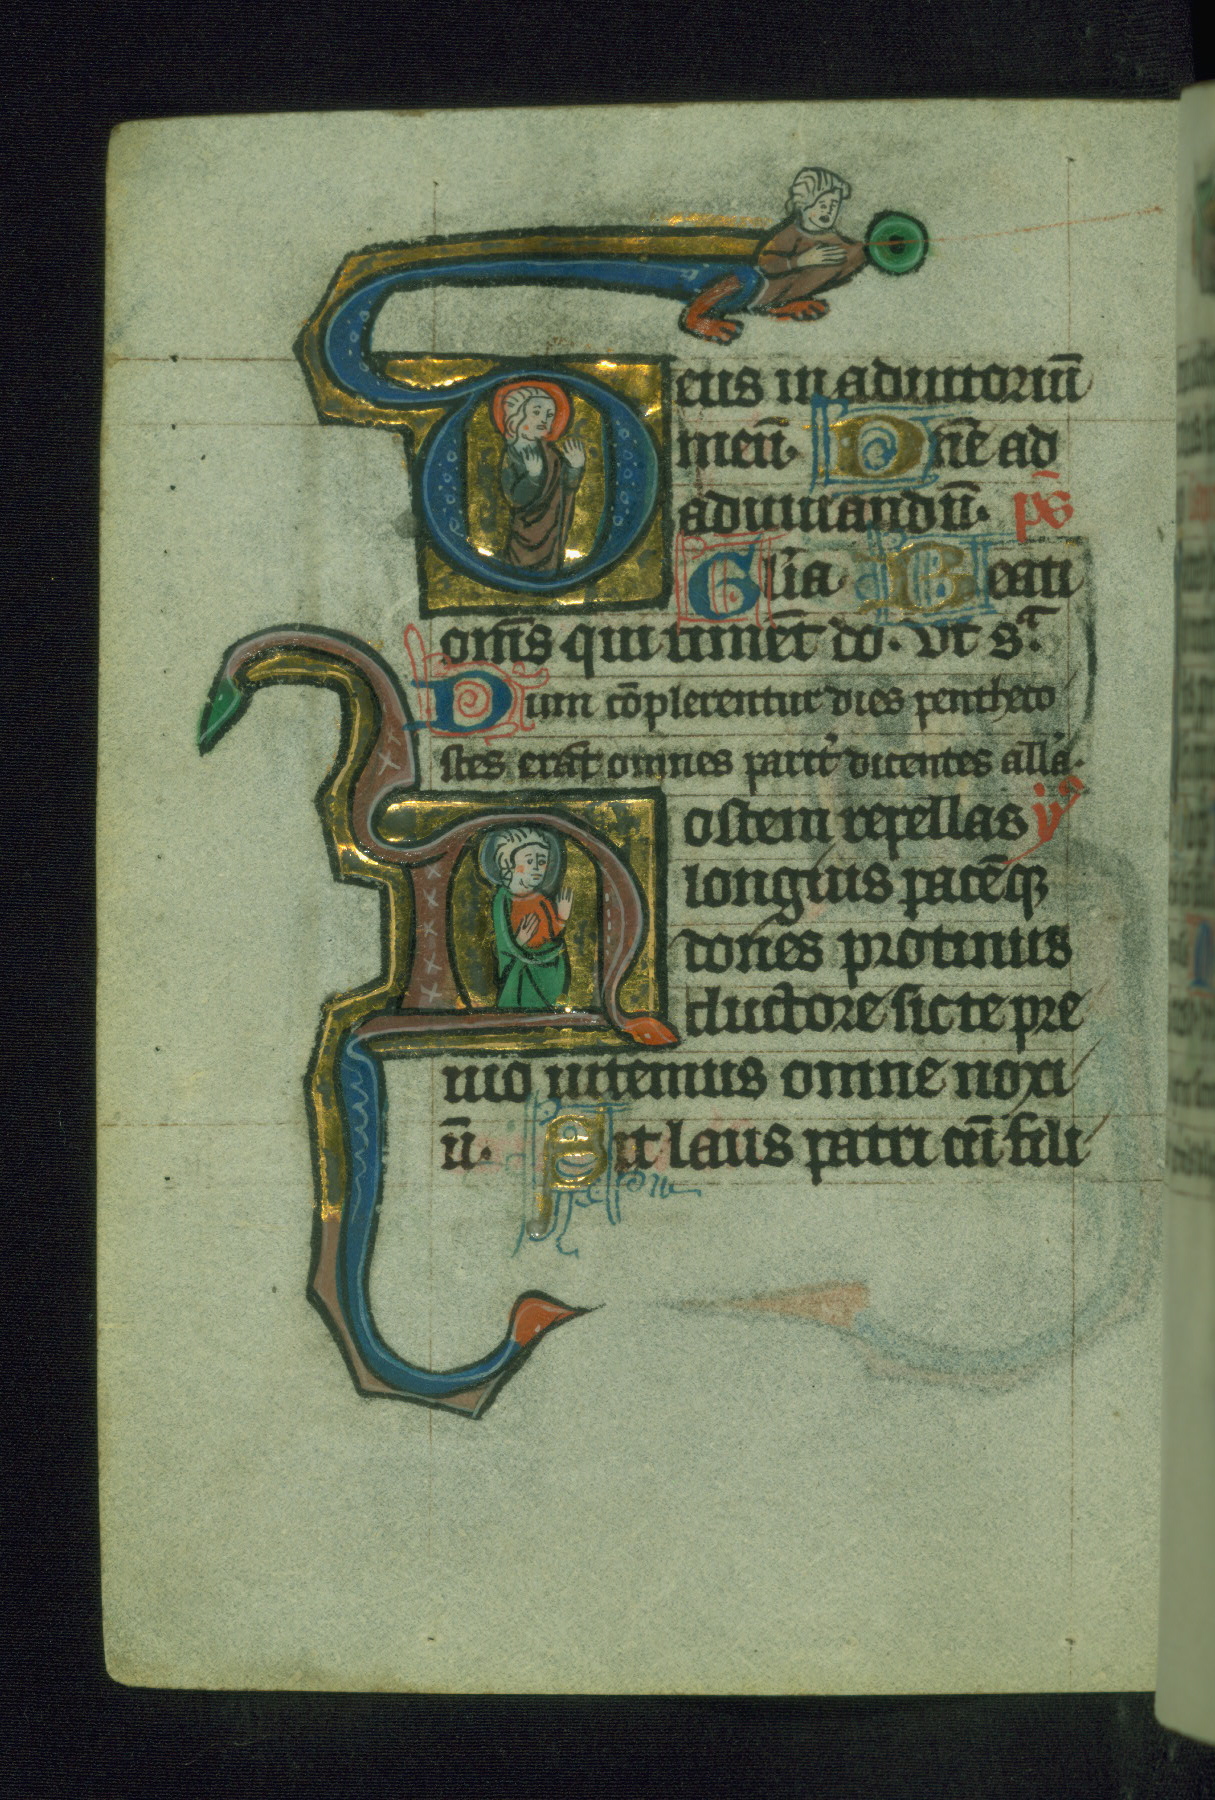 Deus in adiutoriū
meū. Dn̄e ad
adiuuandū. ps̄
Gl̄ia. Beati
om̄s qui timēt do. vt sᵃ.
Dum cōplerentur dies pentheco
stes erāt omnes parit᾽ dicentes all᾽a.
Hostem repellas
longius pacēqꝫ
dones protinus
ductore sic te pre
uio uitemus omne noxi
ū. Sit laus patri cū fili